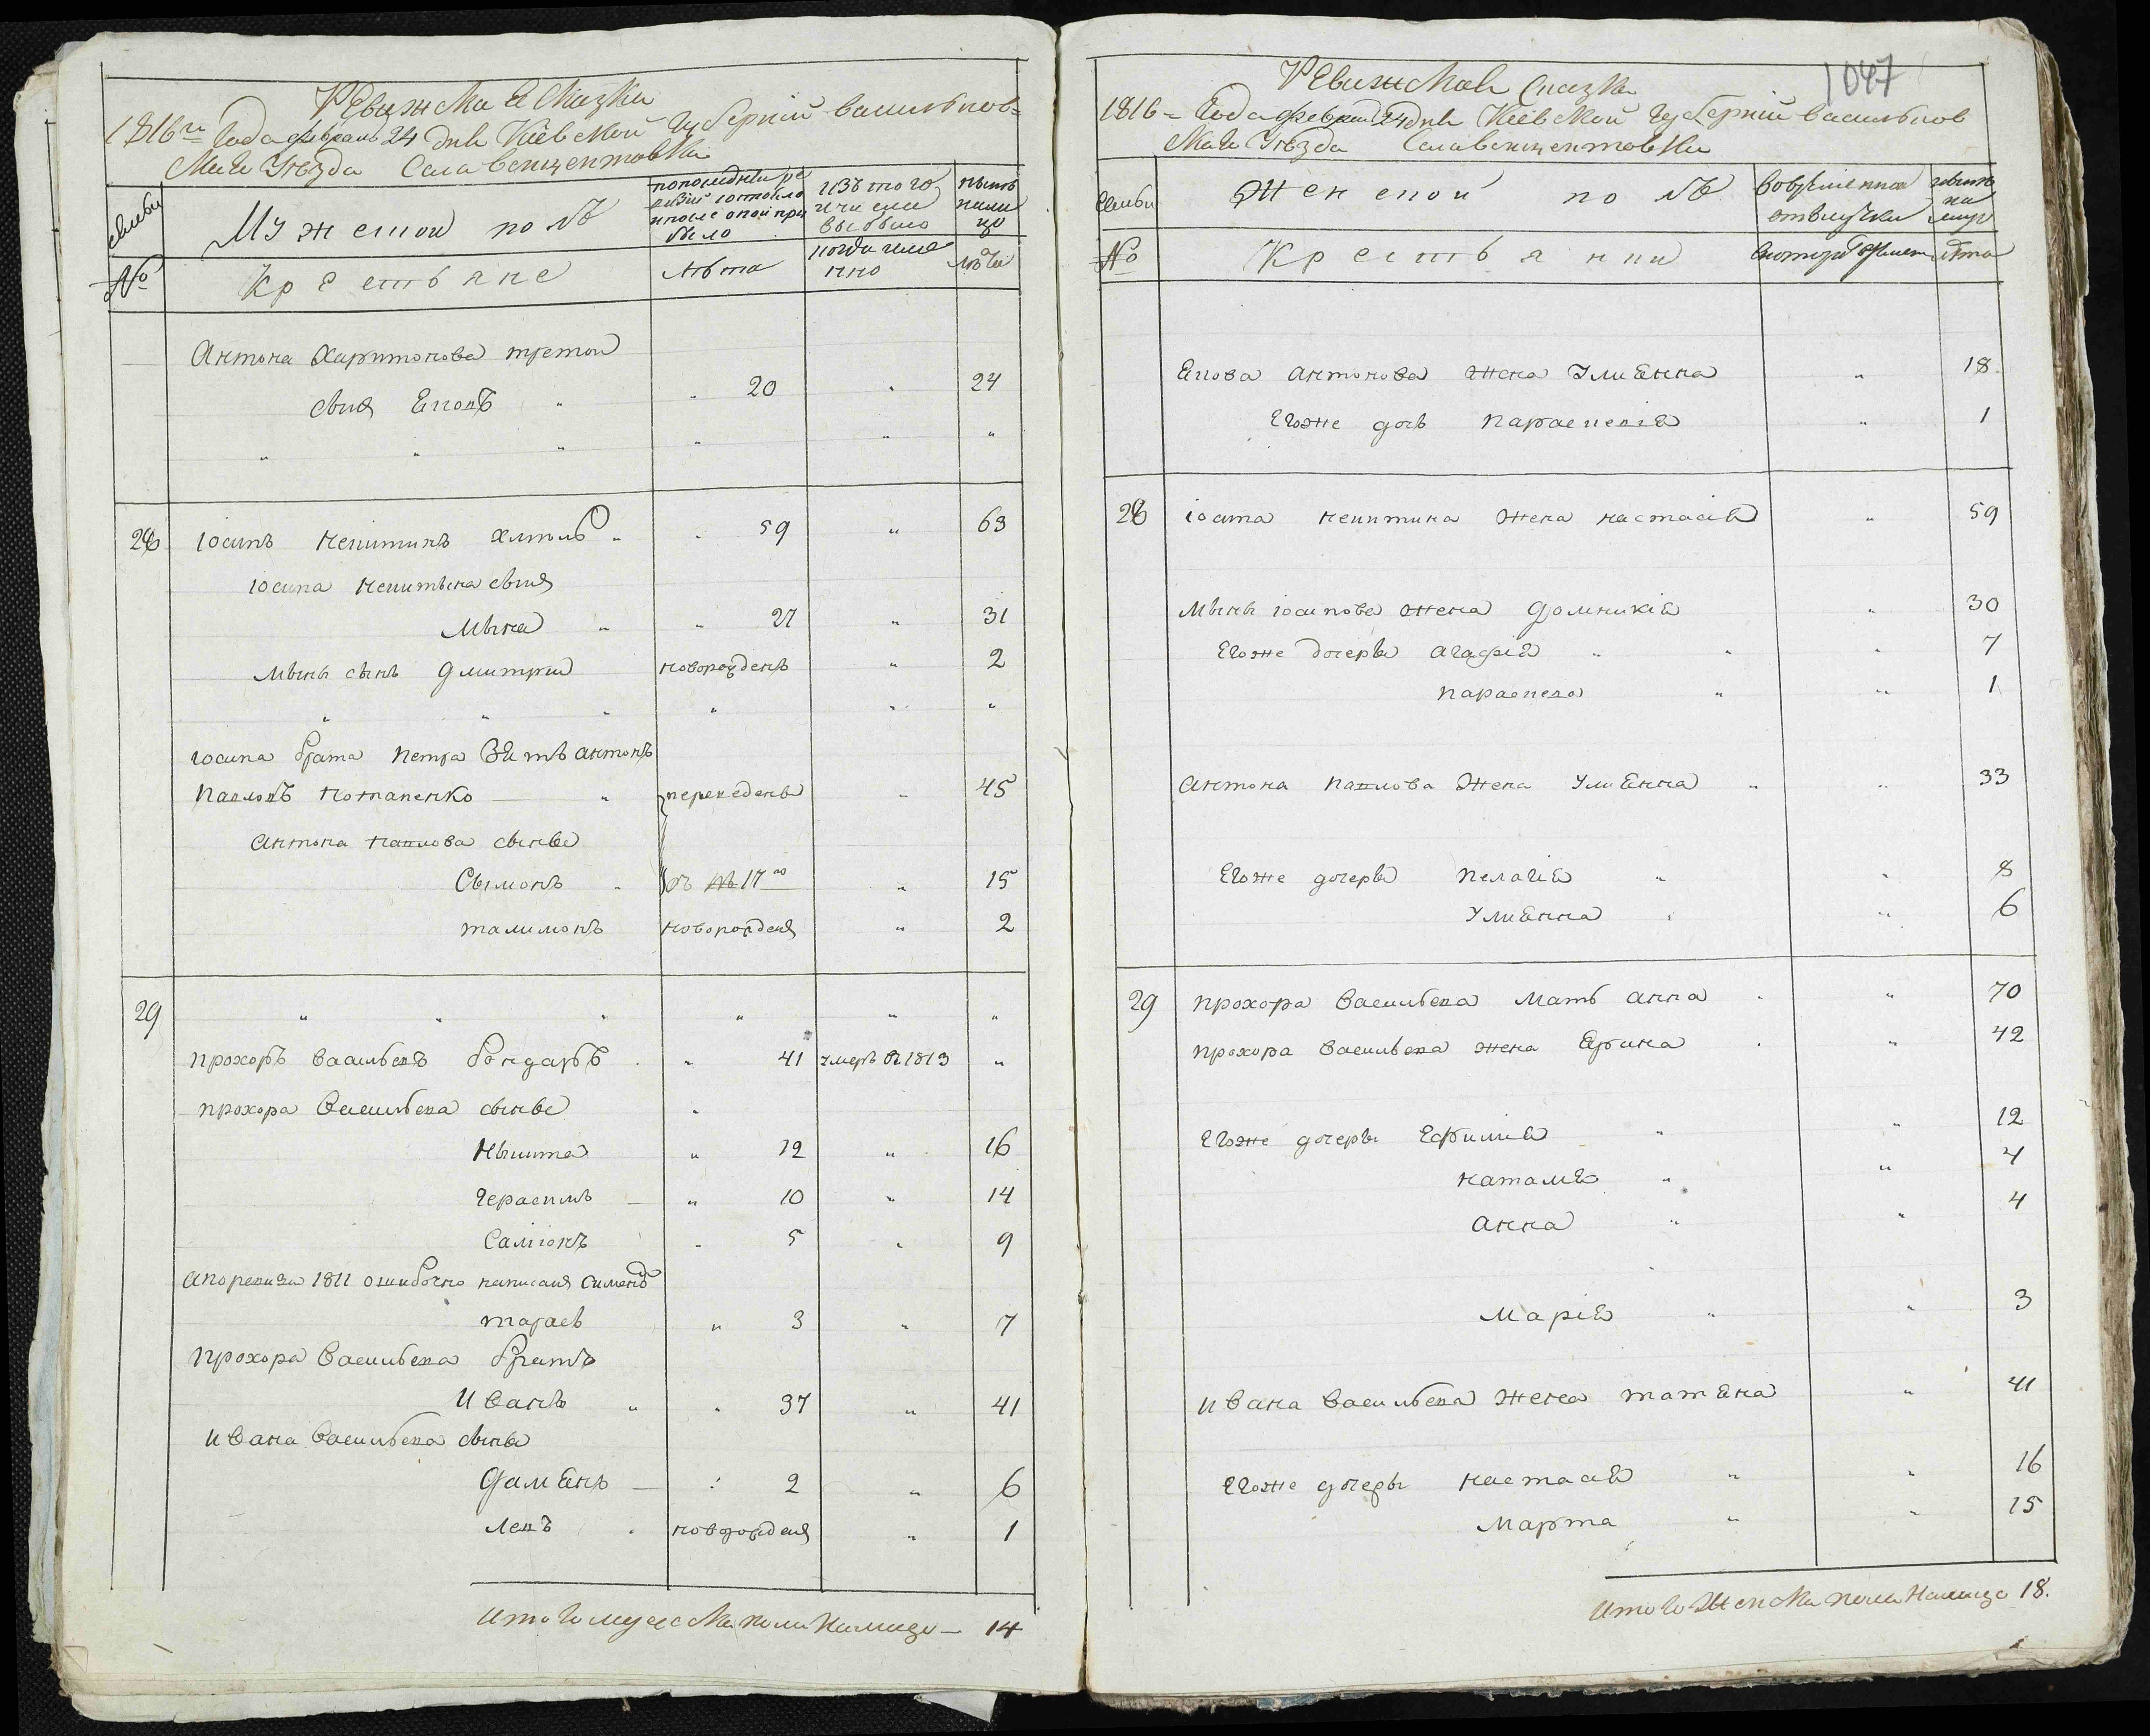 Ревижская Сказка
1816го Года февраля 24 дня Кіевской Губерніи васильков=
ская Уезда Села венцентовки
семьи
Мужеской полъ
по последней ре
визіи состояло
и после оной при
было
изъ того
числа
выбыло
ныне
нали
цо
№
Крестьяне
лѣта
когда имя
нно
лѣта
Антона Харитонова третой
сынъ Еповъ " " 20 " 24
" " " " " "
28 іосипъ некитинъ хмтоль " " 59 " 63
іосипа некитына сынъ
Мына " " 27 " 31
Мыны сынъ дмитри новорожденъ " 2
" " " " " "
іосипа брата петра зять антонъ
павловъ потапенко " переведены " 45
антона павлова сыны
Сымонъ " съ № 17го " 15
талимонъ новорожденъ " 2
29 " " " " " "
прохоръ васильевъ бондаръ " 41 умеръ в 1813 "
прохора васильева сыны "
Мыкита " 12 " 16
Герасимъ " 10 " 14
Саміонъ " 5 " 9
а по ревизіи 1811 ошибочно написанъ Сименъ
тарасъ " 3 " 7
прохора васильева братъ
иванъ " " 37 " 41
ивана васильева сыны
Дамянъ " 2 " 6
левъ " новорожденъ " 1
Итого мужеска пола налицо — 14
1047
Ревижская Сказка
1816 = Года февраля 24 дня Кіевской Губерніи васильков
ская Уезда Села венцентовки
семьи
Женской полъ
во временной
отлучки
ныне
на
лицо
№
Крестьянки
с котораго времени
лѣта
Епова антонова жена Улиянна " 18
Егоже дочь параскевія " 1
28 іосипа некитина жена настасія " 59
Мыны іосипова жена домникія " 30
Егоже дочеры агафія " " " 7
параскева " " 1
антона павлова жена Улиянна " " 33
Егоже дочеры пелагія " " 8
Улиянна " " 6
29 прохора васильева мать анна " " 70
прохора васильева жена Ерина " " 42
Егоже дочеры Ефимія " " 12
наталя " " 4
анна " " 4
Марія " " 3
ивана васильева жена татяна " 41
Егоже дочеры настасія " " 16
Марта " " 15
Итого Женска пола налицо 18.